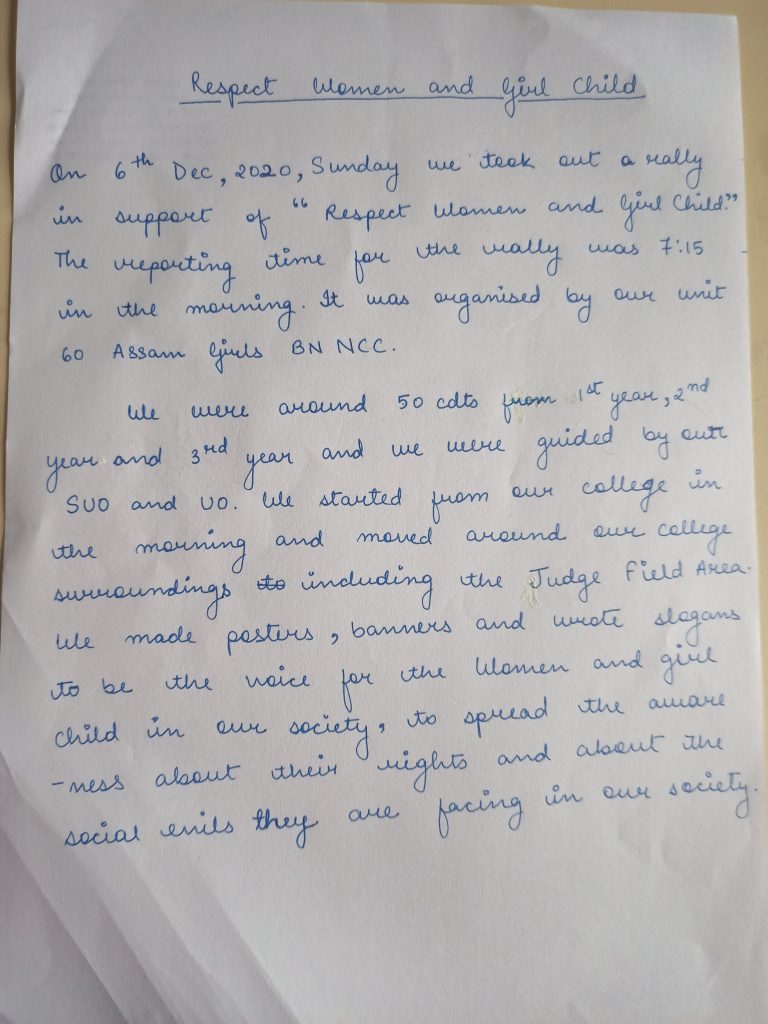 Respect Women and Girl Child
On 6th Dec, 2020, Sunday we took out a rally
in support of "Respect Women and Girl Child."
The reporting time for the rally was 7:15
in the morning. It was organised by our unit
60 Assam Girls BN NCC.
We were around 50 cdts from 1st year, 2nd
year and 3rd year and we were guided by our
SUO and UO. We started from our college in
the morning and moved around our college
surroundings to including the Judge Field Area.
We made posters, banners and wrote slogans
to be the voice for the Women and girl
child in our society, to spread the aware
-ness about their rights and about the
social evils they are facing in our society.